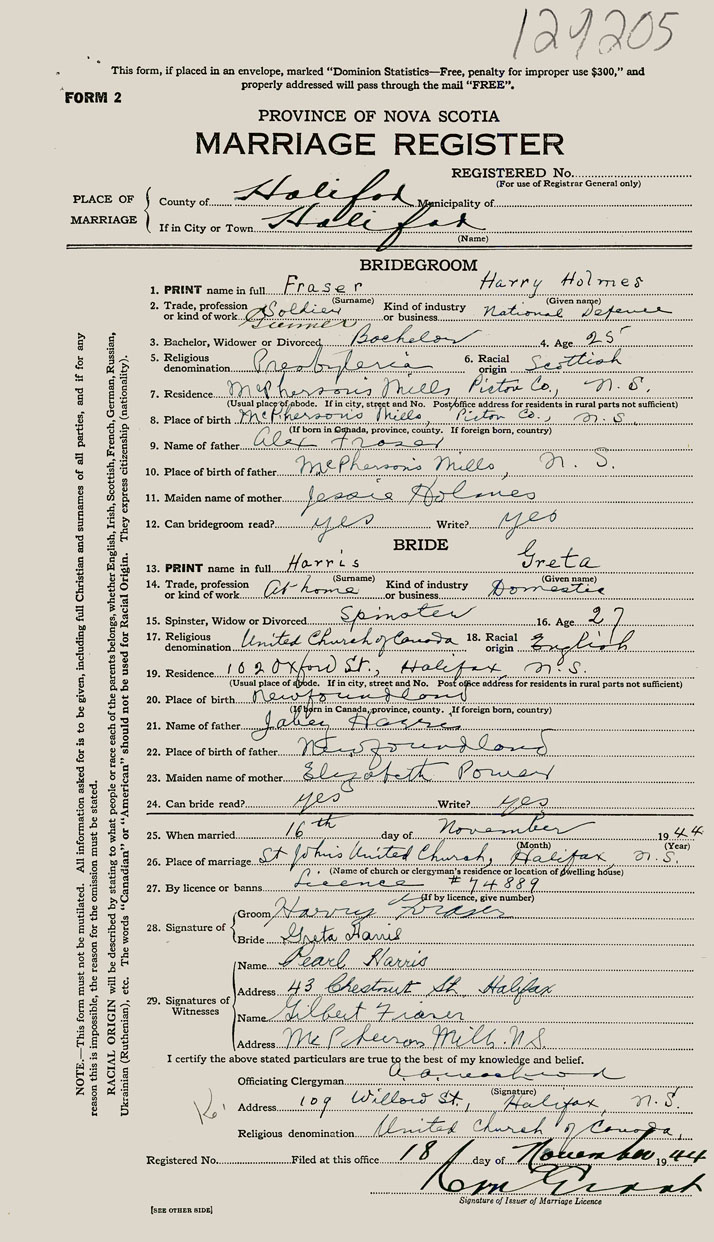 129205
This form, if placed in an envelope, marked “Dominion Statistics—Free, penalty for improper use $300,” and
properly addressed will pass through the mail “FREE”.
FORM 2
PROVINCE OF NOVA SCOTIA
MARRIAGE REGISTER
REGISTERED No.
(For use of Registrar General only)
PLACE OF MARRIAGE
County of Halifax Municipality of
If in City or Town Halifax
(Name)
BRIDEGROOM
1. PRINT name in full Fraser Harry Holmes
(Surname) (Given name)
2. Trade, profession or kind of work Soldier Gunner Kind of industry or business National Defence
3. Bachelor, Widower or Divorced Bachelor 4. Age 25
5. Religious denomination Presbyterian 6. Racial origin Scottish
7. Residence McPherson's Mills Pictou Co., N.S.
(Usual place of abode. If in city, street and No. Post office address for residents in rural parts not sufficient)
8. Place of birth McPherson's Mills, Pictou Co., N.S.
(If born in Canada, province, county. If foreign born, country)
9. Name of father Alex Fraser
10. Place of birth of father McPherson's Mills, N.S.
11. Maiden name of mother Jessie Holmes
12. Can bridegroom read? yes Write? yes
BRIDE
13. PRINT name in full Harris Greta
(Surname) (Given name)
14. Trade, profession or kind of work At home Kind of industry or business Domestic
15. Spinster, Widow or Divorced Spinster 16. Age 27
17. Religious denomination United Church of Canada 18. Racial origin English
19. Residence 102 Oxford St., Halifax, N.S.
(Usual place of abode. If in city, street and No. Post office address for residents in rural parts not sufficient)
20. Place of birth Newfoundland
(If born in Canada, province, county. If foreign born, country)
21. Name of father Jabey Harris
22. Place of birth of father Newfoundland
23. Maiden name of mother Elizabeth Power
24. Can bride read? yes Write? yes
25. When married 16th day of November 1944
(Month) (Year)
26. Place of marriage St John's United Church, Halifax, N.S.
(Name of church or clergyman's residence or location of dwelling house)
27. By licence or banns Licence #74889
(If by licence, give number)
28. Signature of
Groom Harry Fraser
Bride Greta Harris
29. Signatures of Witnesses
Name Pearl Harris
Address 43 Chestnut St, Halifax
Name Gilbert Fraser
Address McPherson Mills N.S.
I certify the above stated particulars are true to the best of my knowledge and belief.
Officiating Clergyman
(Signature)
Address 109 Willow St., Halifax, N.S.
Religious denomination United Church of Canada,
Registered No. Filed at this office 18 day of November 1944
Signature of Issuer of Marriage Licence
[SEE OTHER SIDE]
NOTE.—This form must not be mutilated. All information asked for is to be given, including full Christian and surnames of all parties, and if for any
reason this is impossible, the reason for the omission must be stated.
RACIAL ORIGIN will be described by stating to what people or race each of the parents belongs, whether English, Irish, Scottish, French, German, Russian,
Ukrainian (Ruthenian), etc. The words “Canadian” or “American” should not be used for Racial Origin. They express citizenship (nationality).